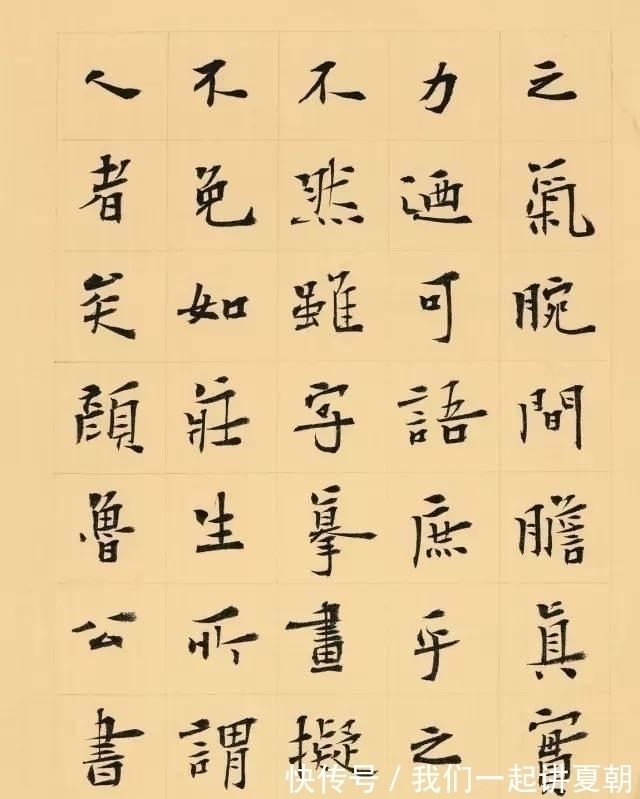 之氣腕間膽真實
力迺可語庶乎之
不然雖字摹畫擬
不免如莊生所謂
人者矣顏魯公書
快传号 / 我们一起讲夏朝